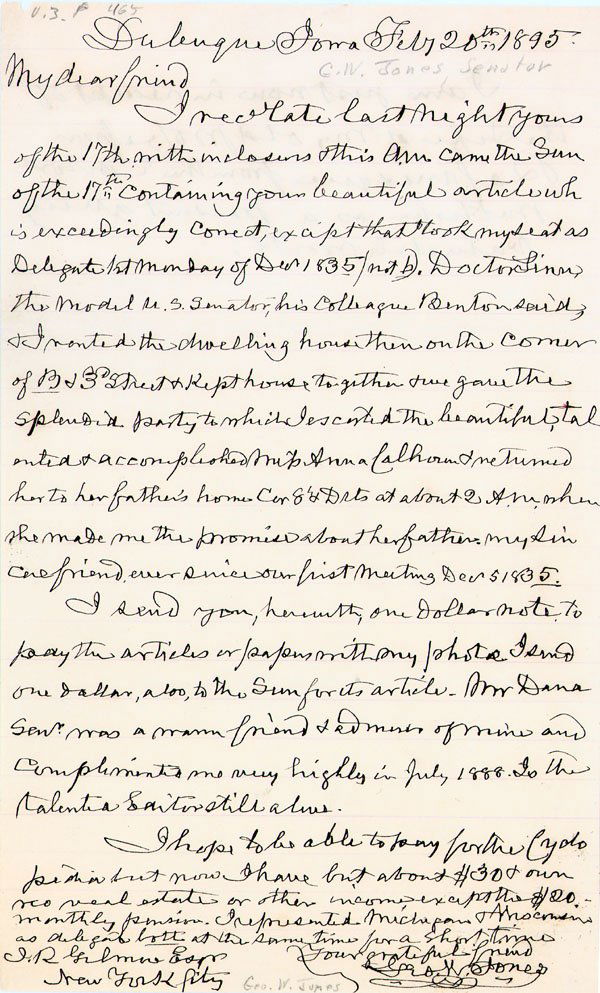 V.3. P 465
Dubuque Iowa Feby 20th 1895.
G.W. Jones Senator
My dear friend
I recd late last night yours
of the 17th with inclosures & this Am came the Sun
of the 17th containing your beautiful article wh
is exceedingly correct, except that took my seat as
Delegate 1st Monday of Decr 1835 (not 6). Doctor Linn,
the Model U.S. Senator, his colleague Benton said,
& I rented the dwelling house then on the corner
of B & 3d Street & kept house together & we gave the
splendid party to which I escorted the beautiful, tal
ented & accomplished Miss Anna Calhoun & returned
her to her father's home Cor 8th & D sts at about 2 A.M. when
she made me the promise about her father. my sin
cere friend, ever since our first meeting Decr 5 1835.
I send you, herewith, one dollar note, to
pay the articles or papers with my photo. I send
one dollar, also, to the Sun for its article. Mr Dana
Senr was a warm friend & admirer of mine and
complimented me very highly in July 1888. Is the
talented Editor still alive.
I hope to be able to pay for the Cyclo
pedia but now I have but about $30 & own
no real estate or other income except the $20.-
monthly pension. I represented Michigan & Wisconsin
as delegate both at the same time for a short time
J.R. Gilmore Esqr
Your grateful friend
New York City
Geo. W. Jones
Geo. W. Jones